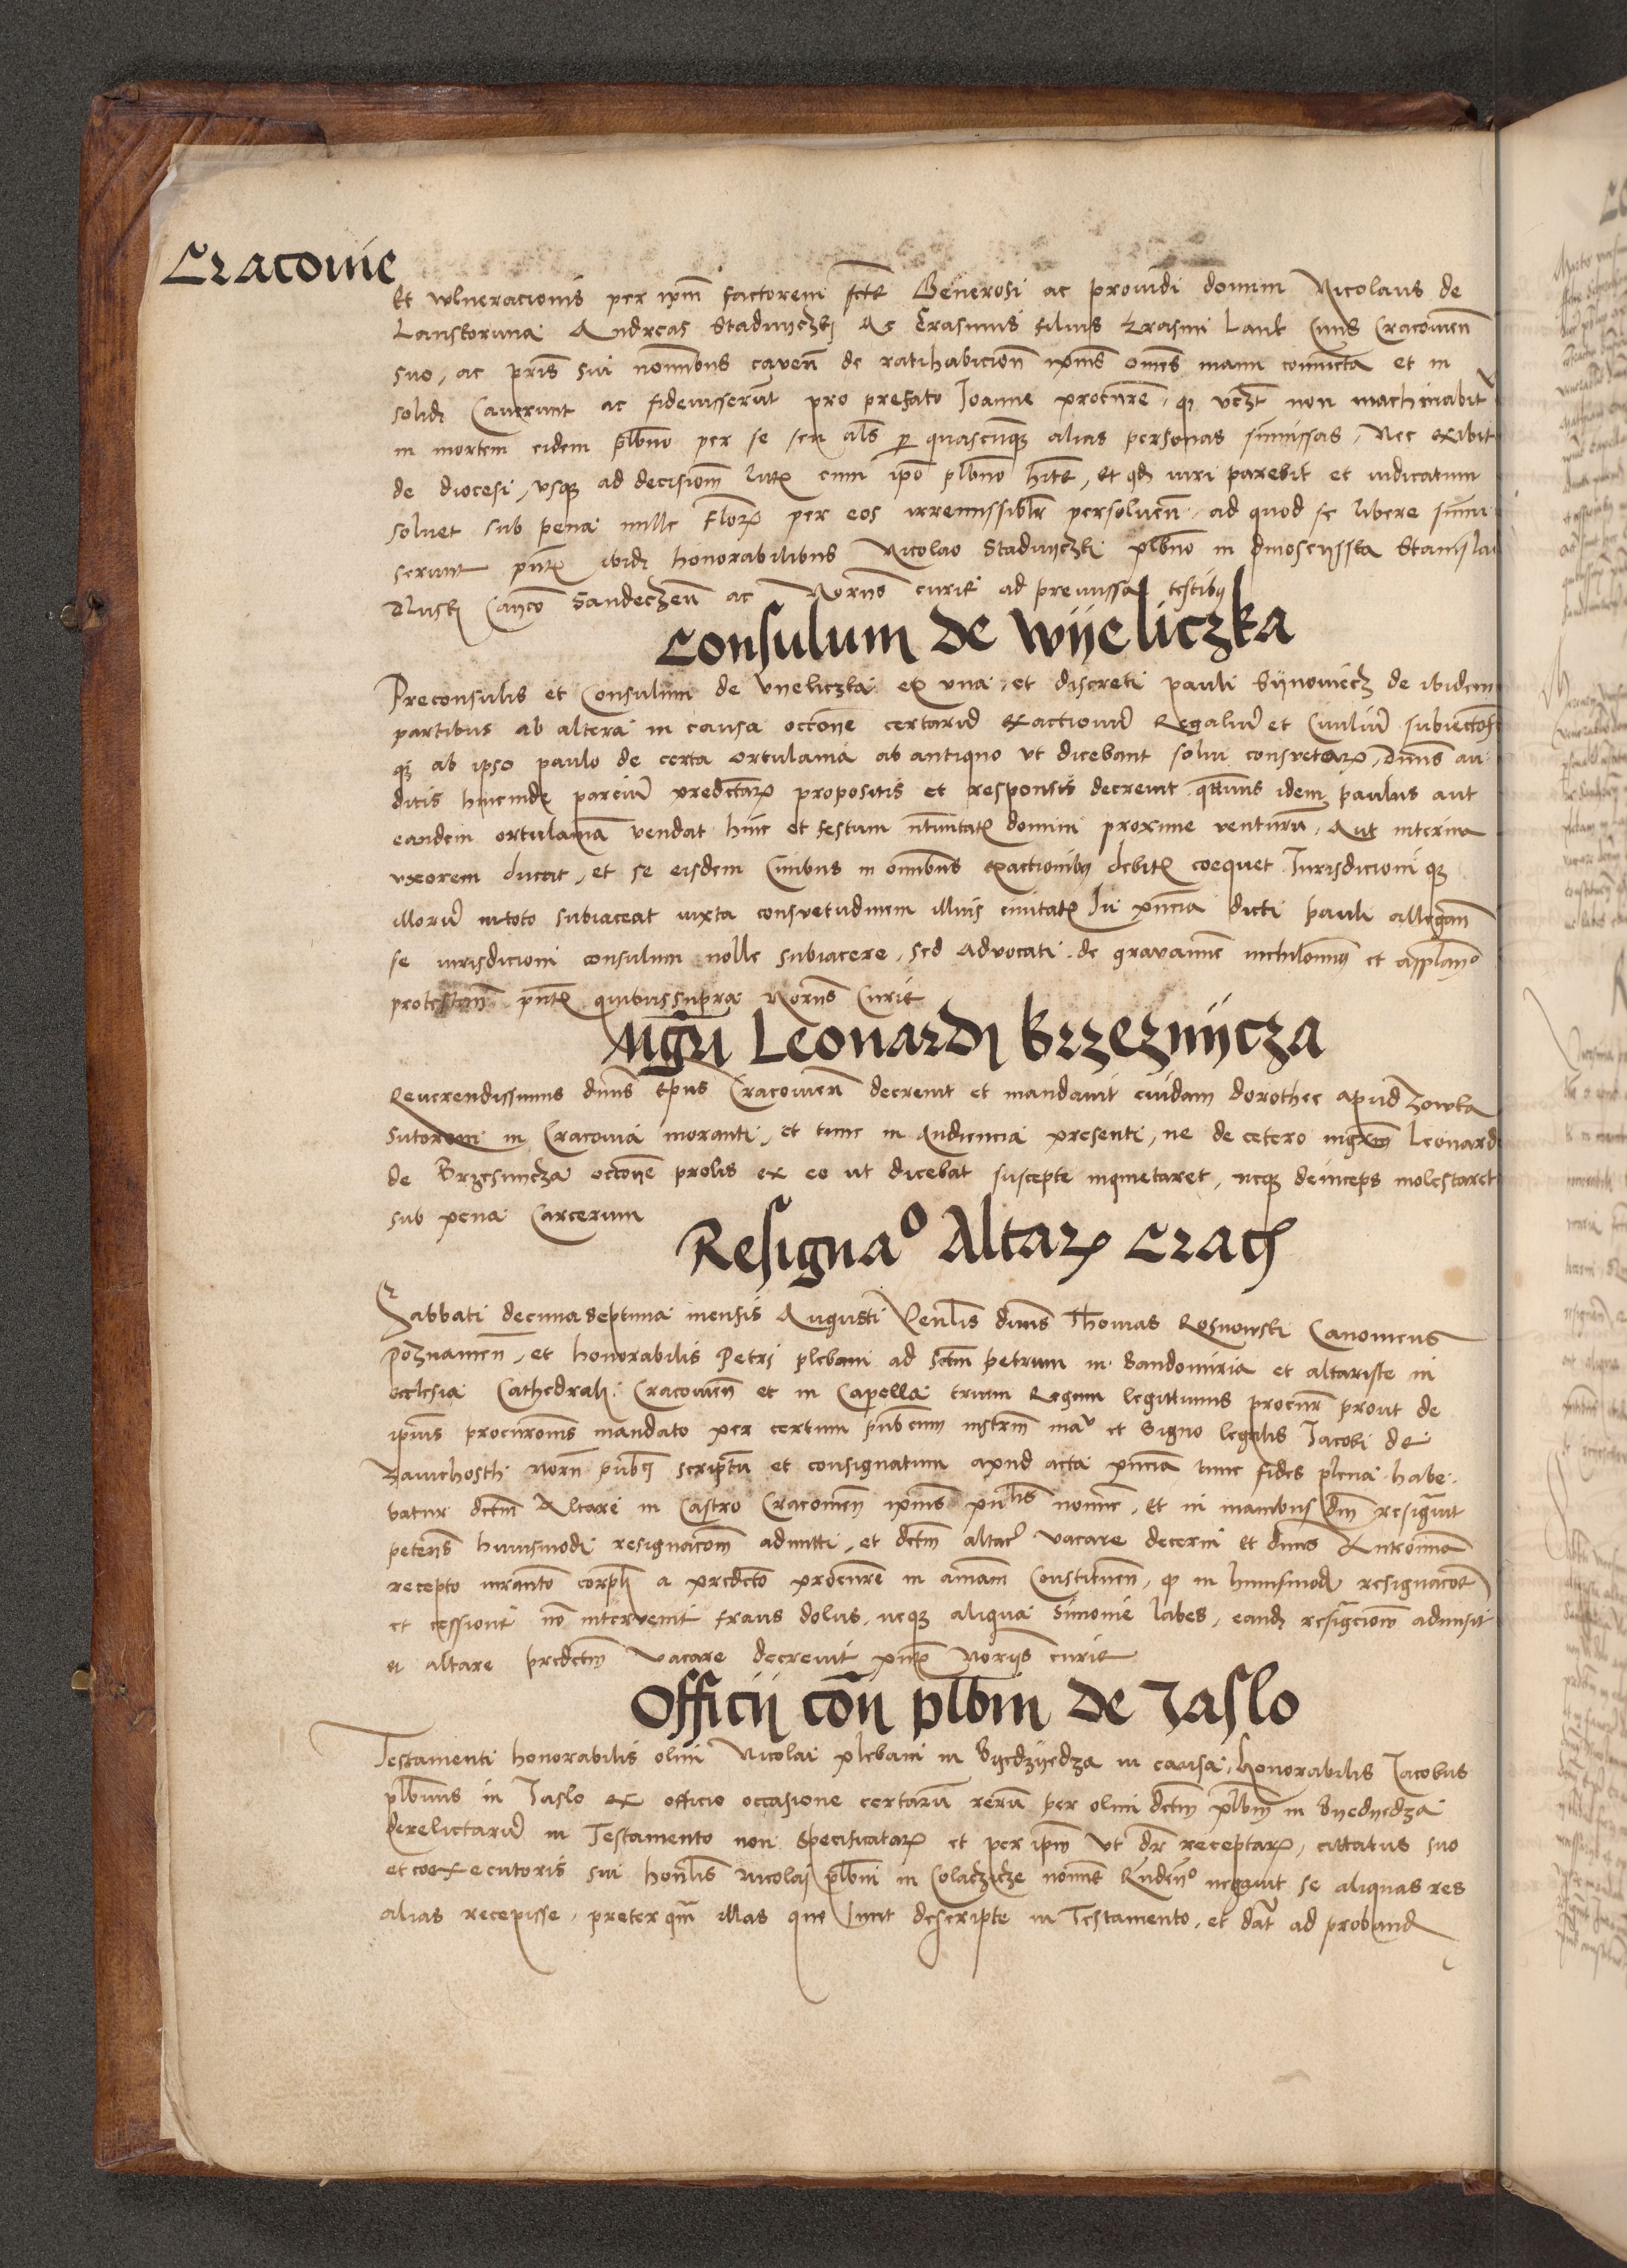 Cracovie
Et vulneracionis per ipm̄ factorem Generosi ac providi domini Nicolaus de
Lanskoruna Andreas Stadnyczkj Ac Erasmus filius Erasmi Lank Civis Cracovien̄
suo, ac pr̄is sui nominibus caven̄ de ratihabicion̄ ip̄ius om̄es manu coniuncta et in
solidꝫ Caverunt ac fideiusserunt pro prefato Joanne procurē, qꝫ vcꝫt non machinabit
in mortem eidem plb̄no per se seu al̄s p quascunqꝫ alias personas summissas, Nec exibit
de diocesi, usqꝫ ad decisionē litꝭ cum ip̄o plb̄no, Et qdꝫ iuri parebit et iudicatum
solvet sub pena mille florꝝ per eos irremissibilr̄ persolven̄ ad quod se libere summi
serunt pn̄tꝭ ibidꝫ honorabilibus Nicolao Stadnyczki plb̄no in Stanisla
Canco Sandeczen̄ ac Norijs curie ad premissa testibꝫ
Consulum de Wyeliczka
Preconsulis et Consulum de vyeliczka ex una, et discreti pauli Synowiecz de ibidem
partibus ab altera in causa occōne certarū exactionū Regaliū et Civiliū
qꝫ ab ipso paulo de certa ortulania ab antiquo ut dicebant solvi consuetarꝝ, Dn̄us au
ditis hincinde parciū predictarꝝ propositis et responsis decrevit q̄tenus idem paulus aut
eandem ortulaniā vendat hinc et festum n̄tivitatꝭ domini proxime venturū, Aut interim
uxorem ducat, et se eisdem Civibus in om̄ibus exactionibꝫ debitꝭ coequet Jurisdicioni qꝫ
illorū in toto subiaceat iuxta consuetudinem illius civitatꝭ In pn̄cia dicti pauli allegan̄
se iurisdicioni consulum nolle subiacere, sed Advocati de gravamine et
protestan̄ pn̄tꝭ quibus supra Norijs Curie
Mgr̄i Leonardj Brzeznycza
Reverendissimus dn̄us Ep̄us Cracovien̄ decrevit et mandavit cuidam dorothee apud Zowka
Sutorem in Cracovia moranti, et tunc in Audiencia presenti, ne de cetero mgr̄m Leonard
de Brzesnycza occōne prolis ex eo ut dicebat suscepte inquietaret, neqꝫ deinceps molestaret
sub pena Carcerum
Resignaᵒ Altarꝭ Crac
Sabbati decimaseptima mensis Augusti Ven̄lis dn̄us Thomas Rosnowski Canonicus
Poznanien̄, et honorabilis Petri plebani ad Sctm̄ petrum in Sandomiria et altariste in
ecclesia Cathedrali Cracovien̄ et in Capella trium Regum legittimus procur̄ prout de
ip̄ius procuronis mandato per certum publicum instrm̄ manu et Signo legalis Jacobi de
Zawichosth norij publ scriptū et consignatum apud acta pn̄ciā tunc fides plena habe
batur dctm̄ Altare in Castro Cracovien̄ ip̄ius noīne, Et in manibus dni resignavit
petens huiusmodi resignacōm admitti, et dctm̄ altare vacare decerni et dn̄us
recepto iuran̄to corpli a predcto procure in aīmam Constituen̄, qꝫ in huiusmodi resignacōe
et cessione nō intervenit fraus dolus, neqꝫ aliqua Simonie labes, eandꝫ resignacionē admisit
et altare predctm̄ vacare decrevit pn̄tꝭ Norijs curie
Officij cōn plb̄m de Jaslo
Testamenti honorabilis olim Nicolai plebani in Byedzyedza in causa, Honorabilis Jacobus
plb̄nus in Jaslo ex officio occasione certarū rerū per olim dctm̄ plb̄m in Byedzyedza
derelictarū in Testamento non specificatarꝝ et per ip̄m ut dr̄ receptarꝝ, cittatus suo
et coexecutoris sui hon̄lis Nicolaj plb̄ni in Colaczicze noīne negavit se aliquas res
alias recepisse, preter qm̄ illas que sunt descripte in Testamento, et dat̄ ad proband